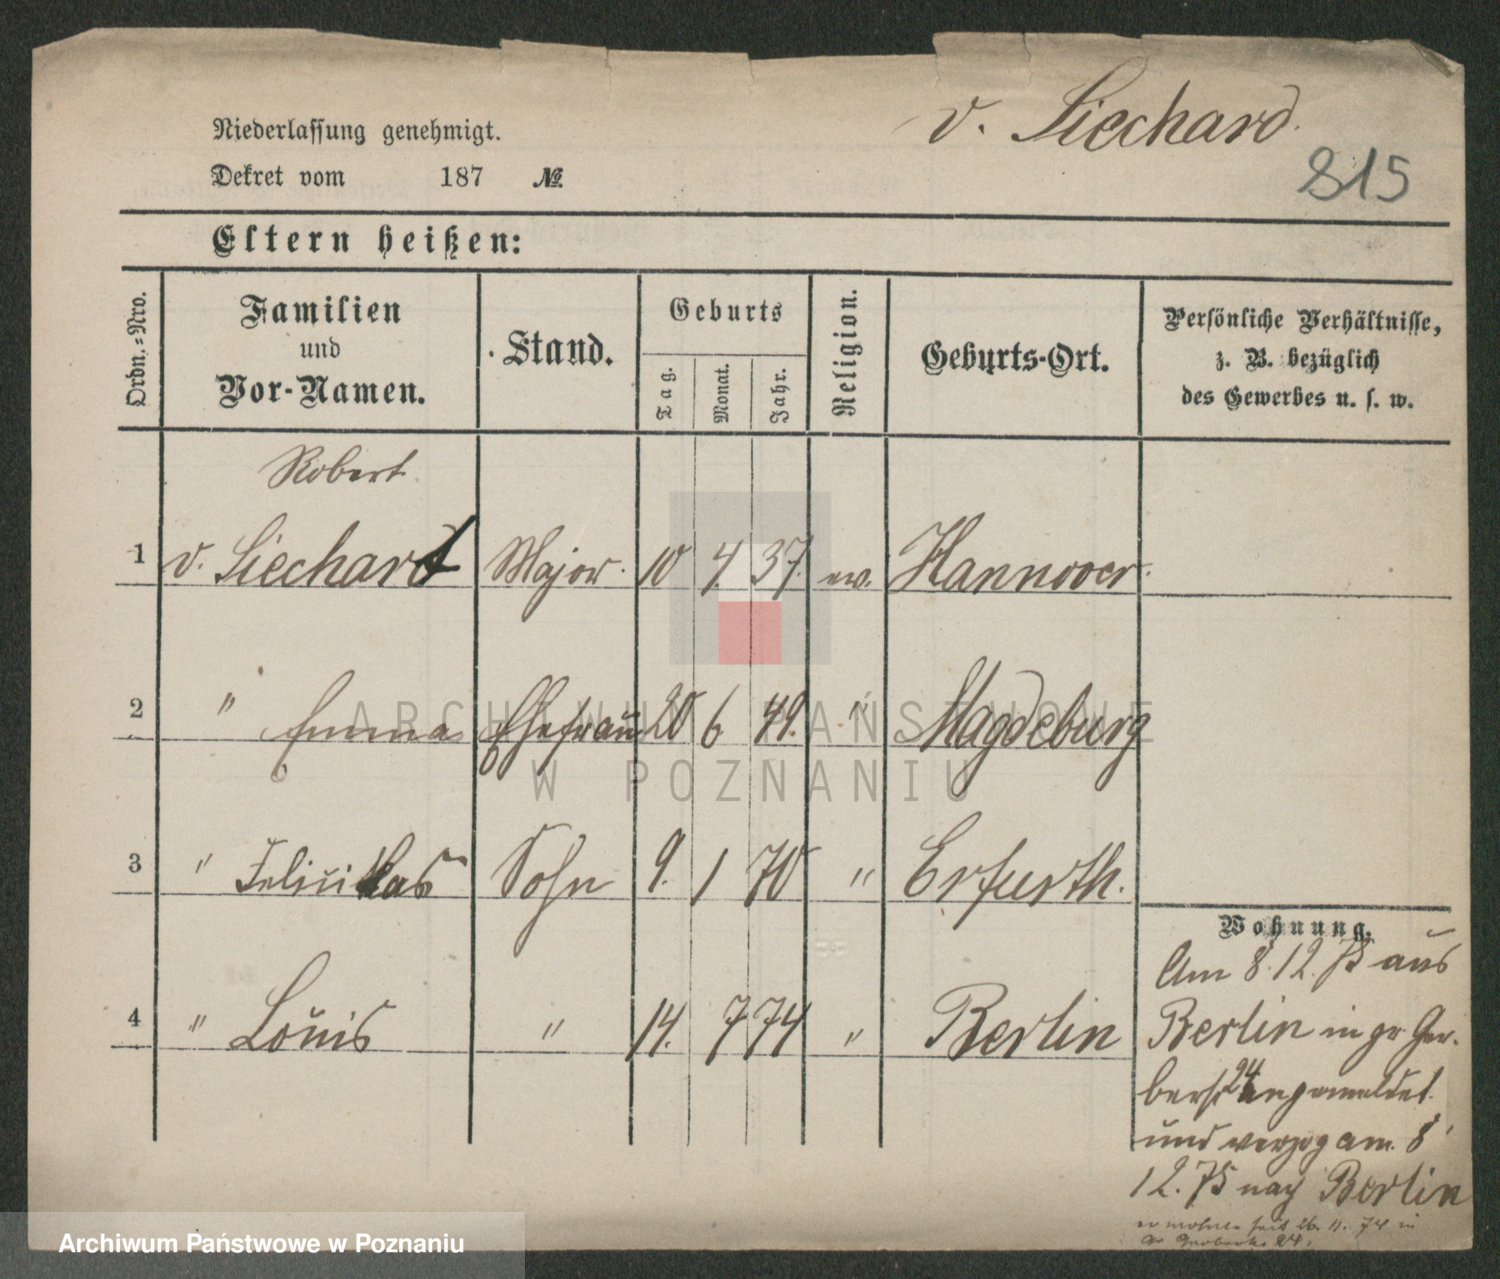 v. Siechard.
815
Niederlassung genehmigt.
Dekret vom 187 №
Eltern heißen:
Ordn.-Nro.
Familien
und
Vor-Namen.
Stand.
Geburts
Tag.
Monat.
Jahr.
Religion.
Geburts-Ort.
Persönliche Verhältnisse,
z. B. bezüglich
des Gewerbes u. s. w.
Robert
1 v. Siechart Major. 10 4. 37. ev. Hannover.
2 " Emma Ehefrau 20 6 49. " Magdeburg
3 " Sohn 9. 1 70 " Erfurth.
4 " Louis " 14. 7 74 " Berlin
Wohnung.
Am 8. 12. 75 aus
Berlin in gr Ger-
berst 24 angemeldet
und verzog am 8
12. 75 nach Berlin
er wohnte seit 26. 11. 74 in
Gr 24.
ARCHIWUM PAŃSTWOWE
W POZNANIU
Archiwum Państwowe w Poznaniu